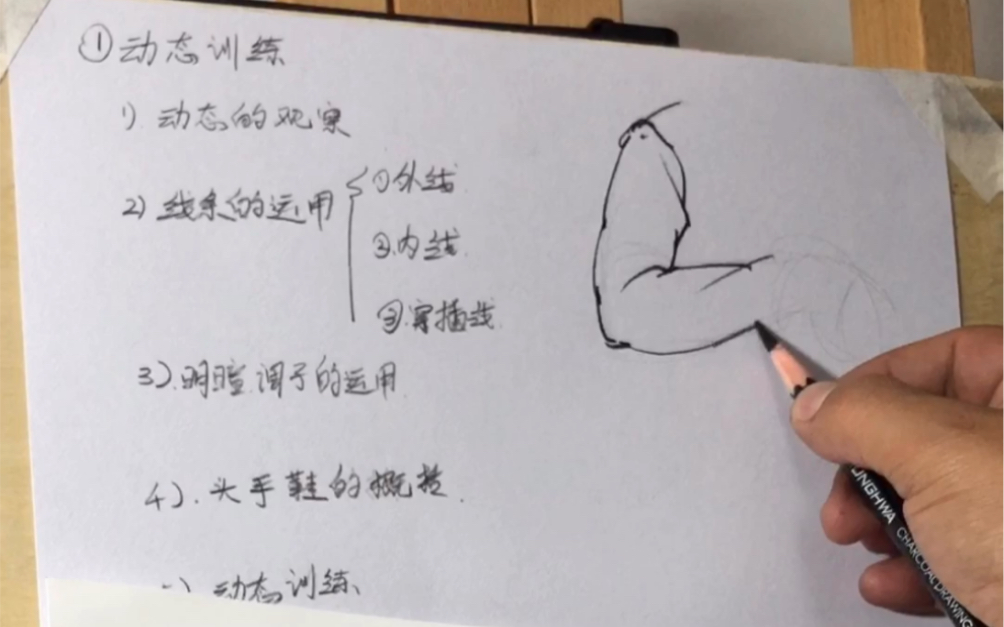 ①动态训练
1) 动态的观察
2) 线条的运用
①外线
②.内线.
③.穿插线
3).明暗调子的运用
4).头手鞋的概括.
动态训练
UNGHWA CHARCOAL DRAWING